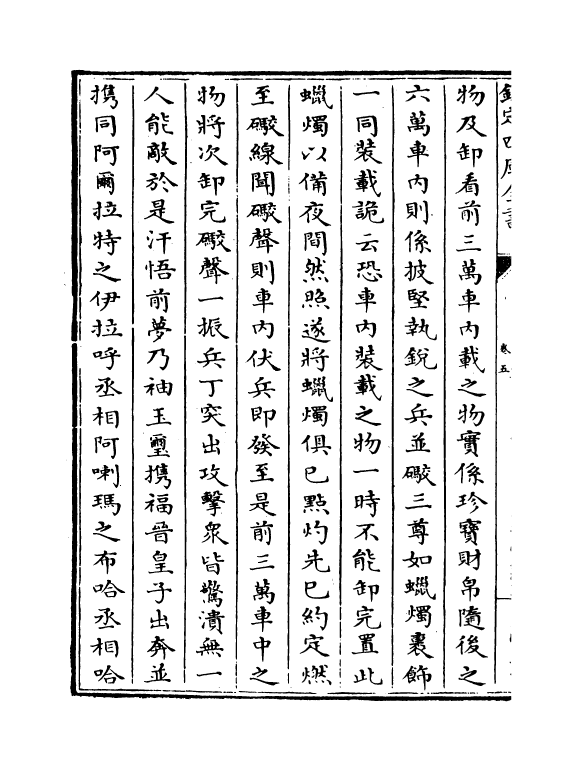 欽定四庫全書
卷五
物及卸看前三萬車內載之物實係珍寶財帛隨後之
六萬車內則係披堅執銳之兵並礮三尊如蠟燭裹飾
一同裝載詭云恐車內裝載之物一時不能卸完置此
蠟燭以備夜間然照遂將蠟燭俱已點灼先已約定燃
至礮線聞礮聲則車內伏兵即發至是前三萬車中之
物將次卸完礮聲一振兵丁突出攻擊衆皆驚潰無一
人能敵於是汗悟前夢乃袖玉璽携福晉皇子出奔並
携同阿爾拉特之伊拉呼丞相阿喇瑪之布哈丞相哈